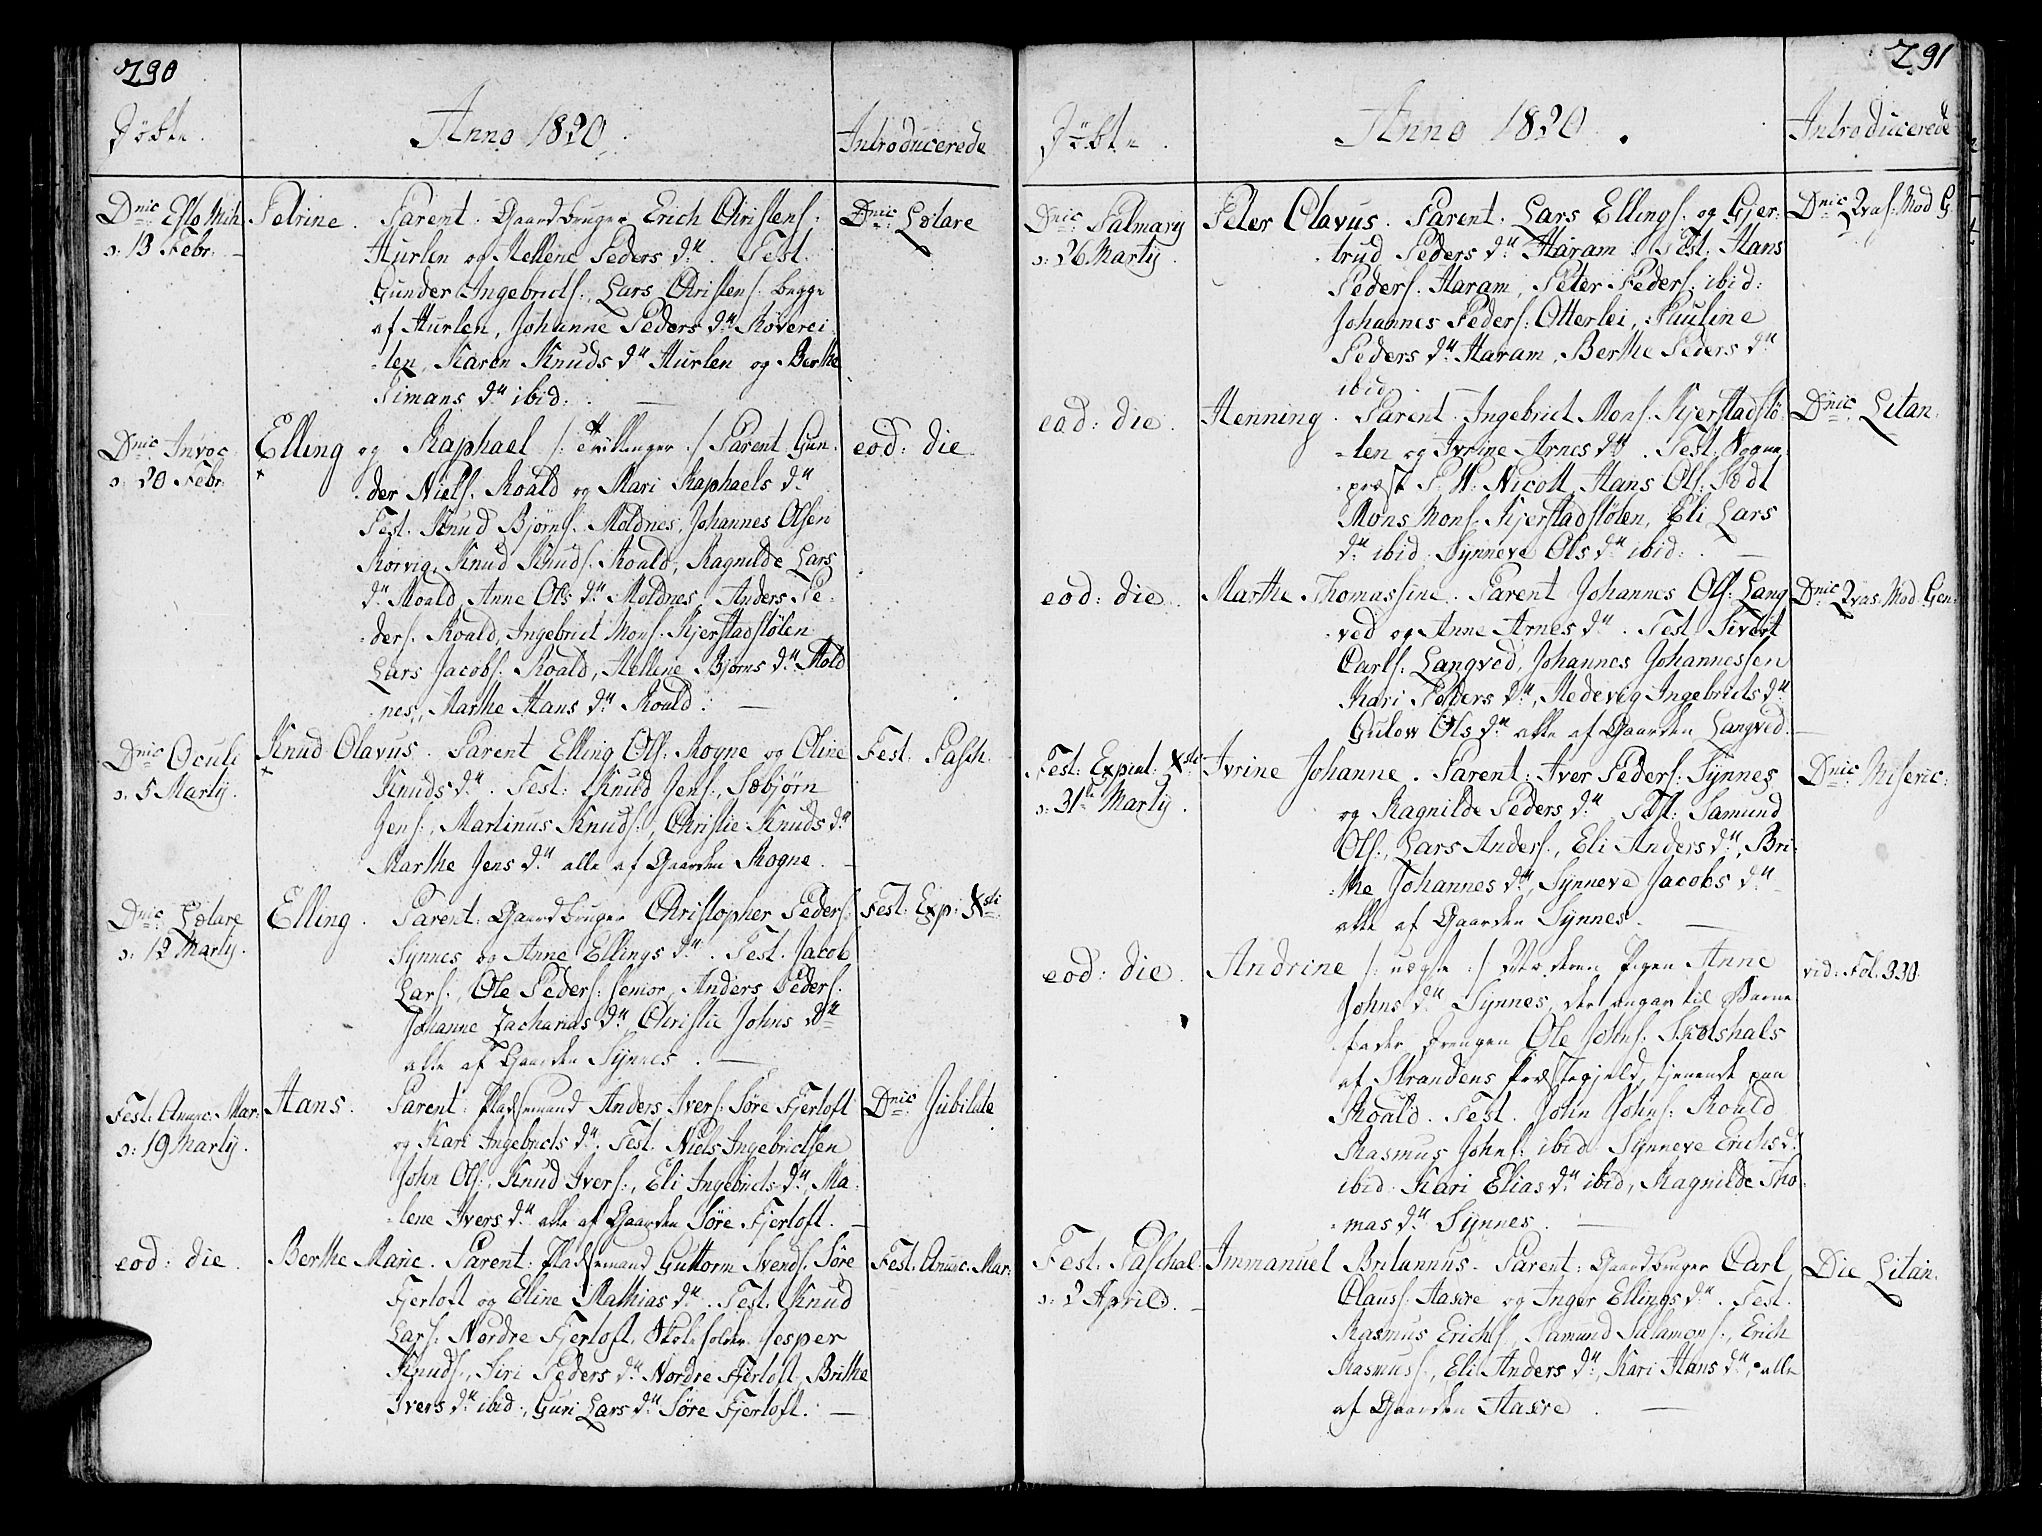 290
Døbte.
Anno 1820.
Introducerede
Dnic Esto Mih.
ɔ: 13 Febr.
Petrine. Parent. Gaardbruger Erich Christens:
Hurlen og Hellene Peders dtr. Test.
Gunder Ingebrictss:, Lars Christens: begge
af Hurlen, Johanne Peders dtr Røverei
-len, Karen Knuds dtr Hurlen og Berthe
Simans dtr ibid: —
Dnic: Lætare
Dnic: Invoc
ɔ: 20 Febr.
Elling og Raphael /: Tvillinger :/ Parent. Gun
der Niels: Roald og Mari Raphaels dtr
Test. Knud Bjørns: Moldnes, Johannes Olsen
Rorvig, Knud Knuds: Roald, Ragnilde Lars
dtr Roald, Anne Ols dtr Moldnes, Anders Pe-
ders: Roald, Ingebrict Mons: Kjerstadstølen
Lars Jacobs: Roald, Hellene Bjørns dtr Mold
nes, Marthe Hans dtr Roald: —
eod: die
Dnic: Oculi
ɔ: 5 Martij.
Knud Olavus. Parent Elling Ols: Rogne og Oline
Knuds dtr. Test: Knud Jens:, Sæbjørn
Jens:, Martinus Knuds:, Christie Knuds dtr
Marthe Jens dtr alle af Gaarden Rogne. —
Fest: Pasch.
Dnic: Lætare
ɔ: 12 Martij.
Elling. Parent: Gaardbruger Christopher Peders:
Synnes og Anne Ellings dtr. Test. Jacob
Lars:, Ole Peders: senior, Anders Peders:
Johanne Zacharias dtr, Christie Johns dtr
alle af Gaarden Synnes. —
Fest: Exp: Xsti
Fest: Anunc: Mar:
ɔ: 19 Martij.
Hans. Parent: Pladsemand Anders Ivers: Søre Fjertoft
og Kari Ingebricts dtr. Test. Niels Ingebrictsen
John Ols:, Knud Ivers:, Eli Ingebricts dtr, Ma-
-lene Ivers dtr alle af Gaarden Søre Fjertoft. —
Dnic: Jubilate
eod: die.
Berthe Marie. Parent: Pladsemand Guttorm Svends: Søre
Fjertoft og Eline Mathias dtr. Test. Knud
Lars: Nordre Fjertoft, Skoleholder Jesper
Knuds:, Siri Peders dtr Nordre Fjertoft, Brithe
Ivers dtr ibid:, Guri Lars dtr Søre Fjertoft. —
Fest: Anunc: Mar:
291
Døbte.
Anno 1820.
Introducerede
Dnic: Palmary
ɔ: 26 Martij
Peter Olavus. Parent. Lars Ellings: og Gjer-
trud Peders dtr Haram. Test. Hans
Peders: Haram, Peter Peders: ibid:
Johannes Peders: Otterlei, Pauline
Peders dtr Haram, Berthe Peders dtr
ibid —
Dnic: Qvas: Mod G.
eod: die.
Henning. Parent. Ingebrict Mons: Kjerstadstø-
-len og Ivrine Arnes dtr. Test: Sogne
præst P. W. Nicoll, Hans Ols:
Mons Mons: Kjerstadstølen, Eli Lars
dtr ibid: Synneve Ols dtr ibid: . —
Dnic: Litan.
eod: die.
Marthe Thomassine. Parent Johannes Ols: Lang
ved og Anne Arnes dtr. Test. Sivert
Carls: Langved, Johannes Johannessen
Kari Peders dtr, Hedevig Ingebricts dtr
Gulow Ols dtr alle af Gaarden Langved. —
Dnic: Qvas: Mod. Gen:
Fest: Expiat: Xsti
ɔ: 31te Martij.
Ivrine Johanne. Parent: Iver Peders: Synnes
og Ragnilde Peders dtr. Test: Samund
Ols:, Lars Anders:, Eli Anders dtr, Bri-
the Johannes dtr, Synneve Jacobs dtr
alle af Gaarden Synnes. —
Dnic: Miseric:
eod: die.
Andrine /: uægte :/ Moderen Pigen Anne
Johns dtr Synnes, der angav til Barne
fader Drengen Ole Johns:
af Strandens Præstegjeld, tjenende paa
Roald. Test. John Johns: Roald
Rasmus Johns: ibid: Synneve Erichs dtr
ibid: Kari Elias dtr ibid, Ragnilde Tho-
-mas dtr Synnes. —
vid: Fol. 330.
Fest: Paschal.
ɔ: 2 April. —
Immanuel Britannus. Parent: Gaardbruger Carl
Claus: Haxre og Inger Ellings dtr. Test.
Rasmus Erichs:, Samund Salamons:, Erich
Rasmus:, Eli Anders dtr, Kari Hans dtr, alle
af Gaarden Haxre. —
Die Litan.